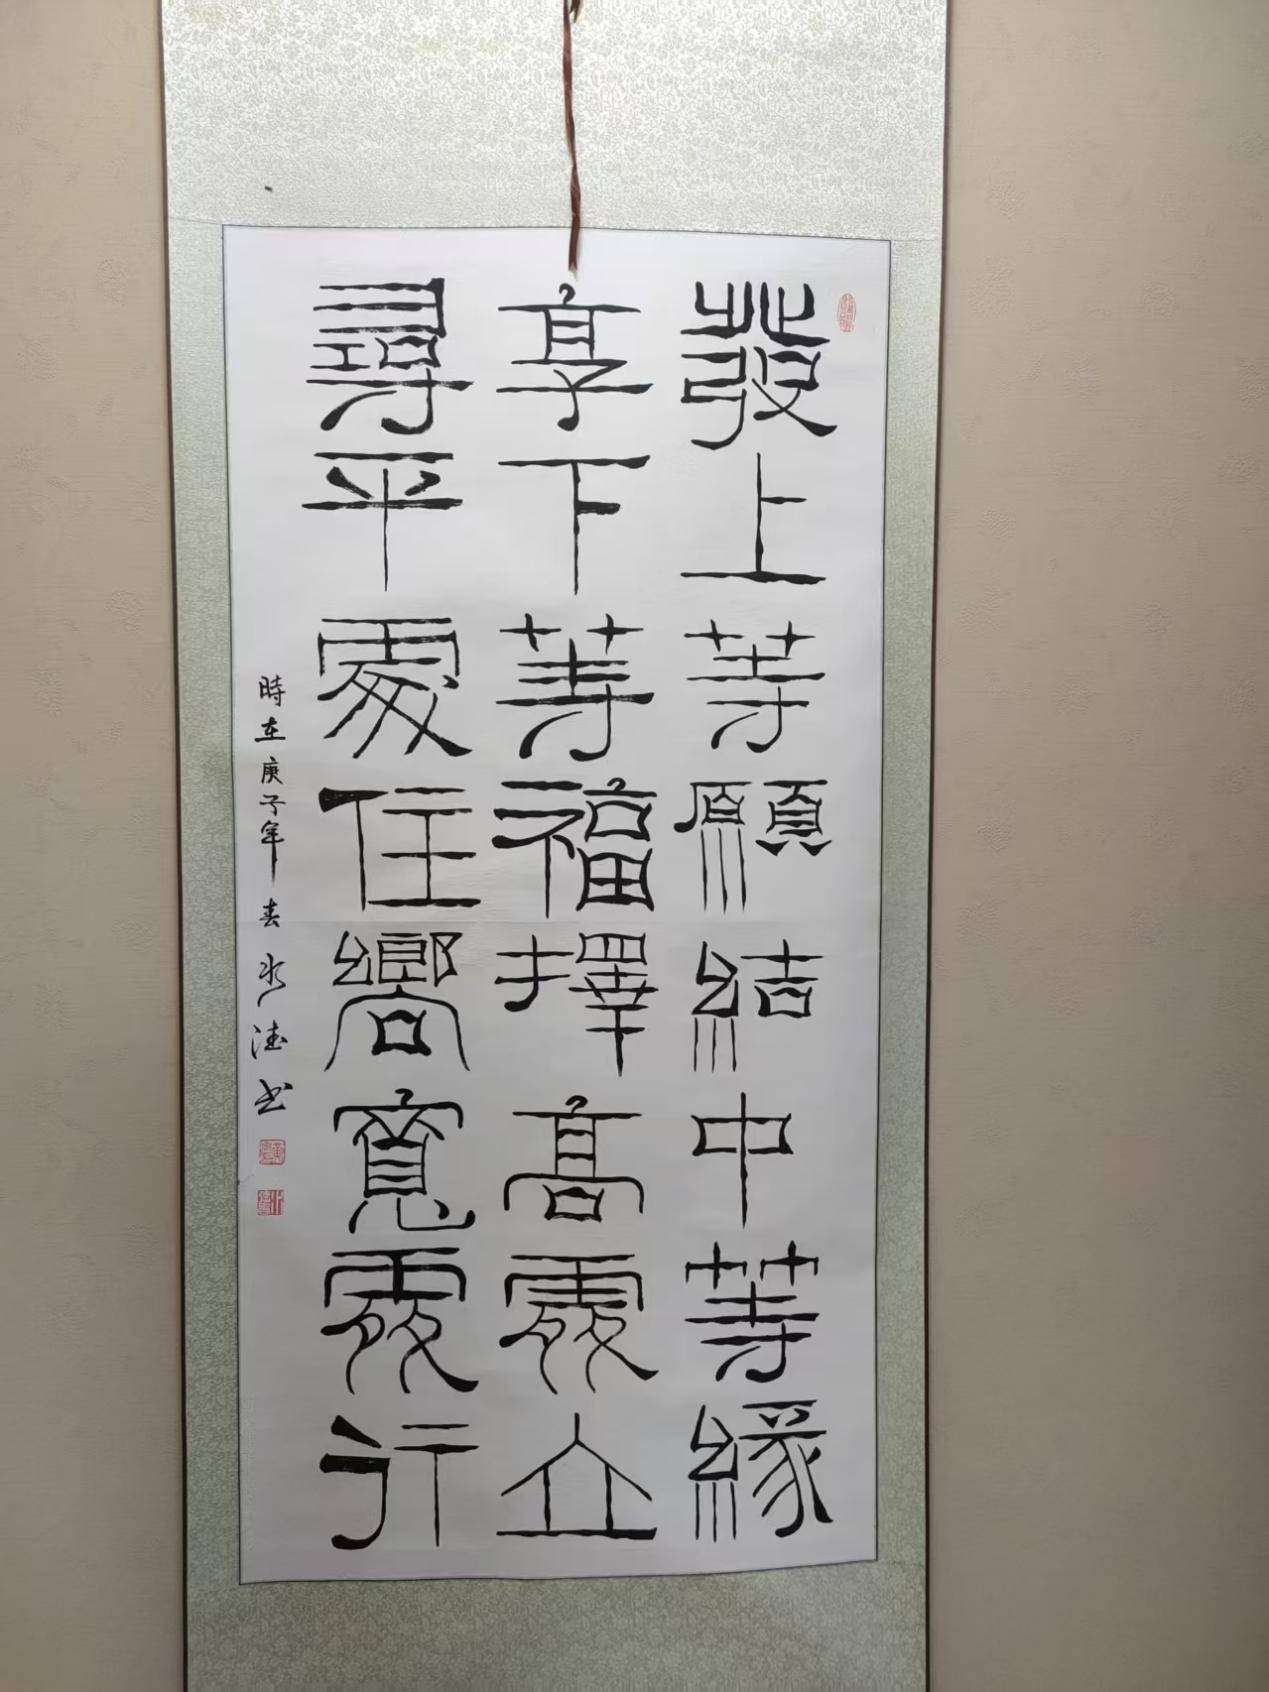 發上等願結中等緣
享下等福擇高處立
尋平處住嚮寬處行
時在庚子年春 书